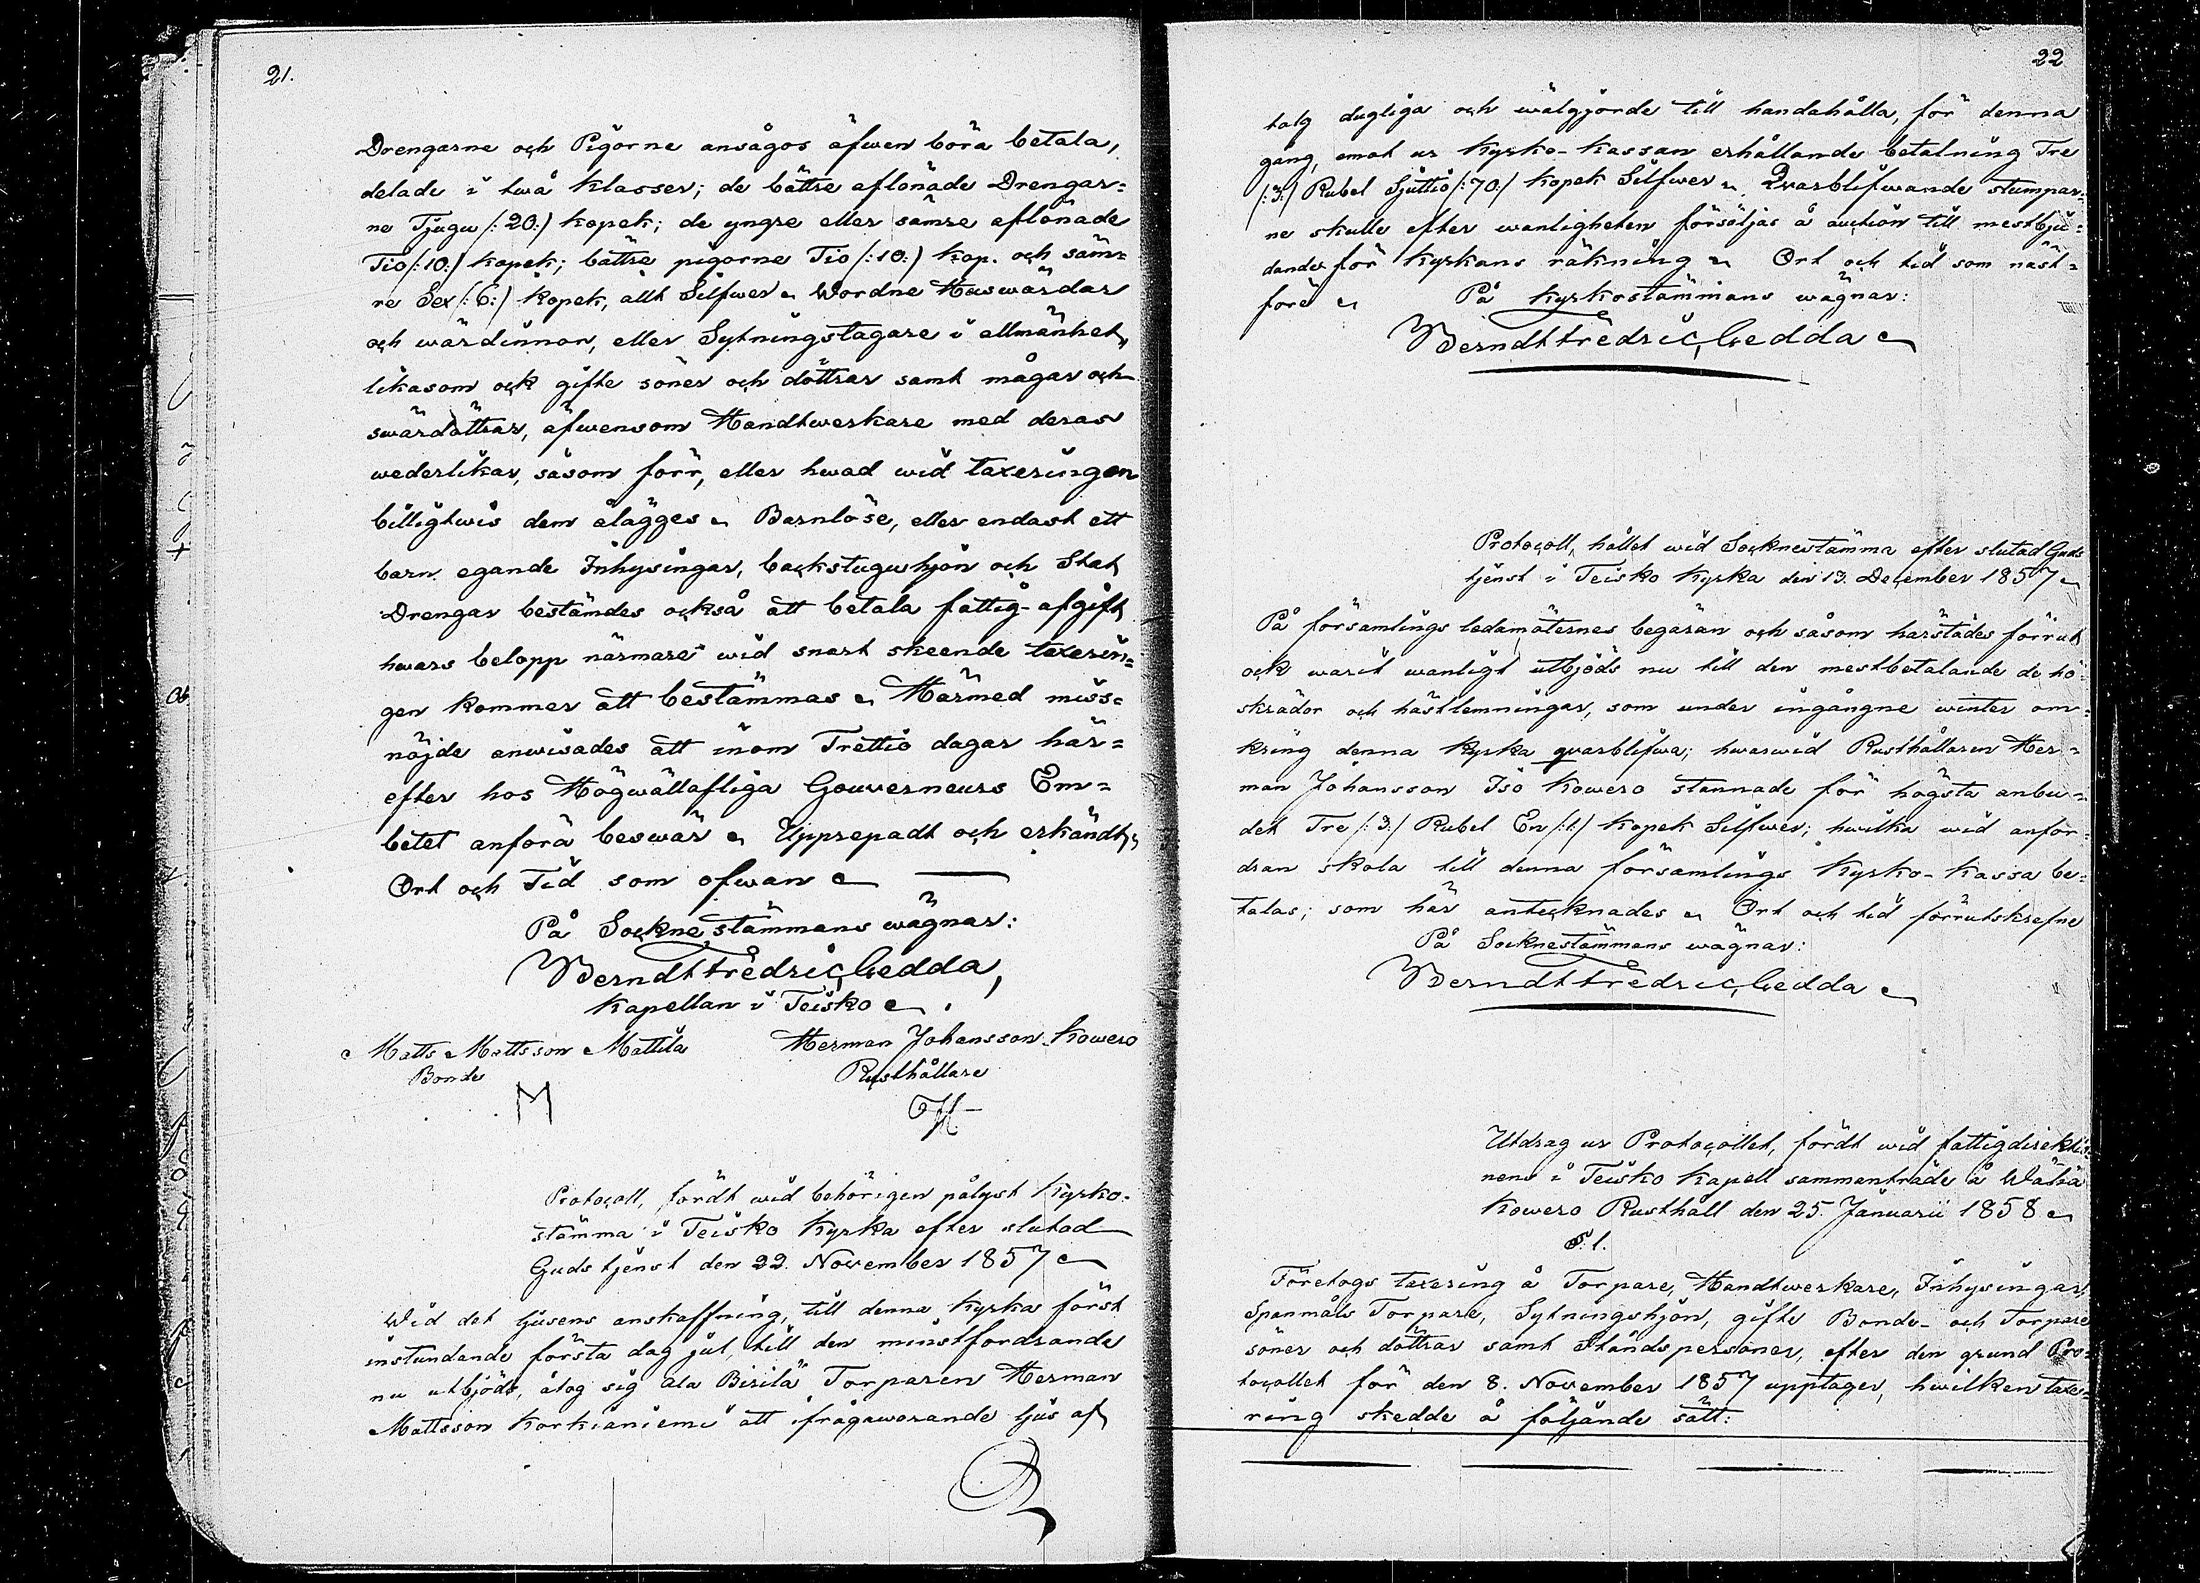 21.
Drengarne och Pigorne ansågos äfwen böra betala,
delade i twå klasser; de bättre aflönade Drengar=
ne Tjugu /:20:/ kopek; de yngre eller sämre aflönade
Tio /:10:/ kopek; bättre pigorne Tio /:10:/ kop. och säm=
re Sex /:6:/ kopek, allt Silfwer. Wordne Huswärdar
och wärdinnor, eller Sytningstagare i allmänhet,
likasom ock gifte söner och döttrar samt mågar och
swärdöttrar, äfwensom Handtwerkare med deras
wederlikar, såsom förr, eller hwad wid taxeringen
billigtwis dem ålägges. Barnlöse, eller endast ett
barn egande Inhysingar, backstuguhjon och Stat
Drengar bestämdes också att betala fattig-afgift,
hwars belopp närmare wid snart skeende taxerin=
gen kommer att bestämmas. Härmed miss=
nöjde anwisades att inom Trettio dagar här=
efter hos Högwällofliga Gouverneurs Em=
betet anföra beswär. Upprepadt och erkändt,
Ort och Tid som ofwan
På Sockne stämmans wägnar:
Berndt Fredric Gedda,
Kapellan i Teisko.
Matts Mattsson Mattila
Herman Johansson Kowero
Bonde
Rusthållare
M
H
Protocoll, fördt wid behörigen pålyst Kyrko-
stämma i Teisko Kyrka efter slutad
Gudstjenst den 22. November 1857
Wid det ljusens anskaffning, till denna Kyrka först
instundande första dag jul, till den minstfordrande
nu utbjöds, åtog sig Ala Birilä Torparen Herman
Mattsson Korkianiemi att ifrågawarande ljus af
22
talg dugliga och wälgjorde till handahålla, för denna
gång, emot ur Kyrko-Kassan erhållande betalning Tre
/:3:/ Rubel Sjuttio /:70:/ kopek Silfwer. Qvarblifwande stumpar=
ne skulle efter wanligheten försäljas å auction till mestbju=
dande för Kyrkans räkning. Ort och tid som näst=
före
På Kyrkostämmans wägnar:
Berndt Fredric Gedda
Protocoll, hållet wid Socknestämma efter slutad Guds
tjenst i Teisko Kyrka den 13. December 1857
På församlings ledamöternes begäran och såsom härstädes förrut
ock warit wanligt utbjöds nu till den mestbetalande de hö=
skrädor och hästlemningar, som under ingångne winter om=
kring denna Kyrka qvarblifwa; hwarwid Rusthållaren Her=
man Johansson Iso Kowero stannade för högsta anbu=
det Tre /:3:/ Rubel En /:1:/ kopek Silfwer; hwilka wid anfor=
dran skola till denna församlings Kyrko-Kassa be=
talas; som här antecknades. Ort och tid förrutskrefne
På Socknestämmans wägnar:
Berndt Fredric Gedda
Utdrag ur Protocollet, fördt wid fattigdirektio=
nens i Teisko Kapell sammanträde å Wähä
Kowero Rusthåll den 25. Januarii 1858
§. 1.
Företogs taxering å Torpare, Handtwerkare, Inhysingar,
Spanmåls Torpare, Sytningshjon, gifte Bonde- och Torpare
söner och döttrar samt Ståndspersoner, efter den grund Pro=
tocollet för den 8. November 1857 upptager, hwilken taxe=
ring skedde å följande sätt: